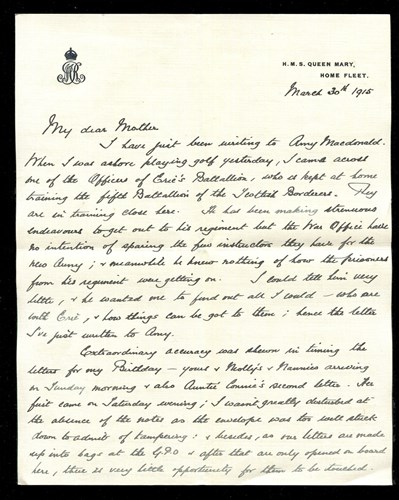 H.M.S. QUEEN MARY,
HOME FLEET.
March 30th 1915
My dear Mother
I have just been writing to Amy Macdonald.
When I was ashore playing golf yesterday, I came across
one of the Officers of Eric's Battallion, who is kept at home
training the fifth Battallion of the Scottish Borderers. They
are in training close here. He has been making strenuous
endeavours to get out to his regiment but the War Office have
no intention of sparing the few instructors they have for the
new Army; & meanwhile he knew nothing of how the prisoners
from his regiment were getting on. I could tell him very
little, & he wanted me to find out all I could – who are
with Eric, & how things can be got to them; hence the letter
I've just written to Amy.
Extraordinary accuracy was shewn in timing the
letters for my Birthday – yours & Molly's & Nannies arriving
on Sunday morning & also Auntie Connie's second letter. Her
first came on Saturday evening; I wasn't greatly disturbed at
the absence of the notes as the envelope was too well stuck
down to admit of tampering: & besides, as our letters are made
up into bags at the G.P.O & after that are only opened on board
here, there is very little opportunity for them to be touched.